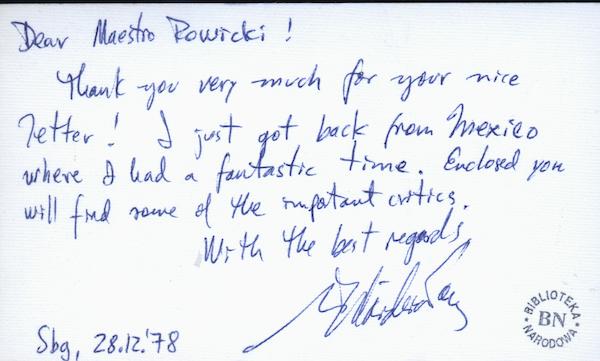 Dear Maestro Rowicki!
Thank you very much for your nice
letter! I just got back from Mexico
where I had a fantastic time. Enclosed you
will find some of the impotant critics.
With the best regards
Sbg, 28.12.'78
BIBLIOTEKA
BN
NARODOWA